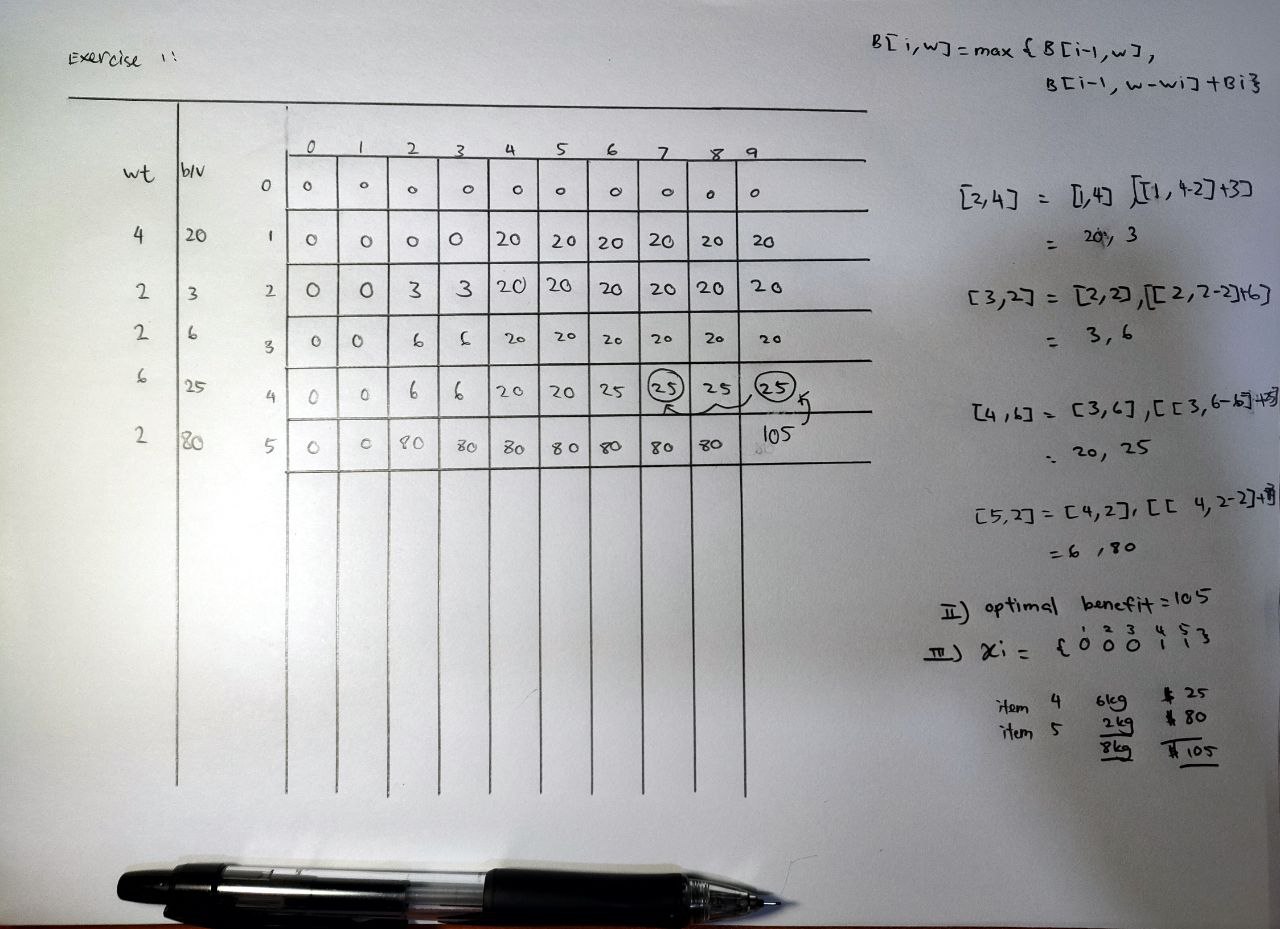 Exercise 1:
B[i,w] = max { B[i-1,w],
B[i-1, w-wi] + Bi}
0 1 2 3 4 5 6 7 8 9
wt b/v
0 0 0 0 0 0 0 0 0 0 0
4 20 1 0 0 0 0 20 20 20 20 20 20
2 3 2 0 0 3 3 20 20 20 20 20 20
2 6 3 0 0 6 6 20 20 20 20 20 20
6 25 4 0 0 6 6 20 20 25 25 25 25
2 80 5 0 0 80 80 80 80 80 80 80 105
[2,4] = [1,4] [[1, 4-2]+3]
= 20, 3
[3,2] = [2,2], [[2, 2-2]+6]
= 3, 6
[4,6] = [3,6], [[3, 6-6]+
= 20, 25
[5,2] = [4,2], [[4, 2-2]+
= 6, 80
II) optimal benefit = 105
1 2 3 4 5
III) xi = { 0 0 0 1 1 }
item 4 6kg $ 25
item 5 2kg $ 80
8kg $ 105